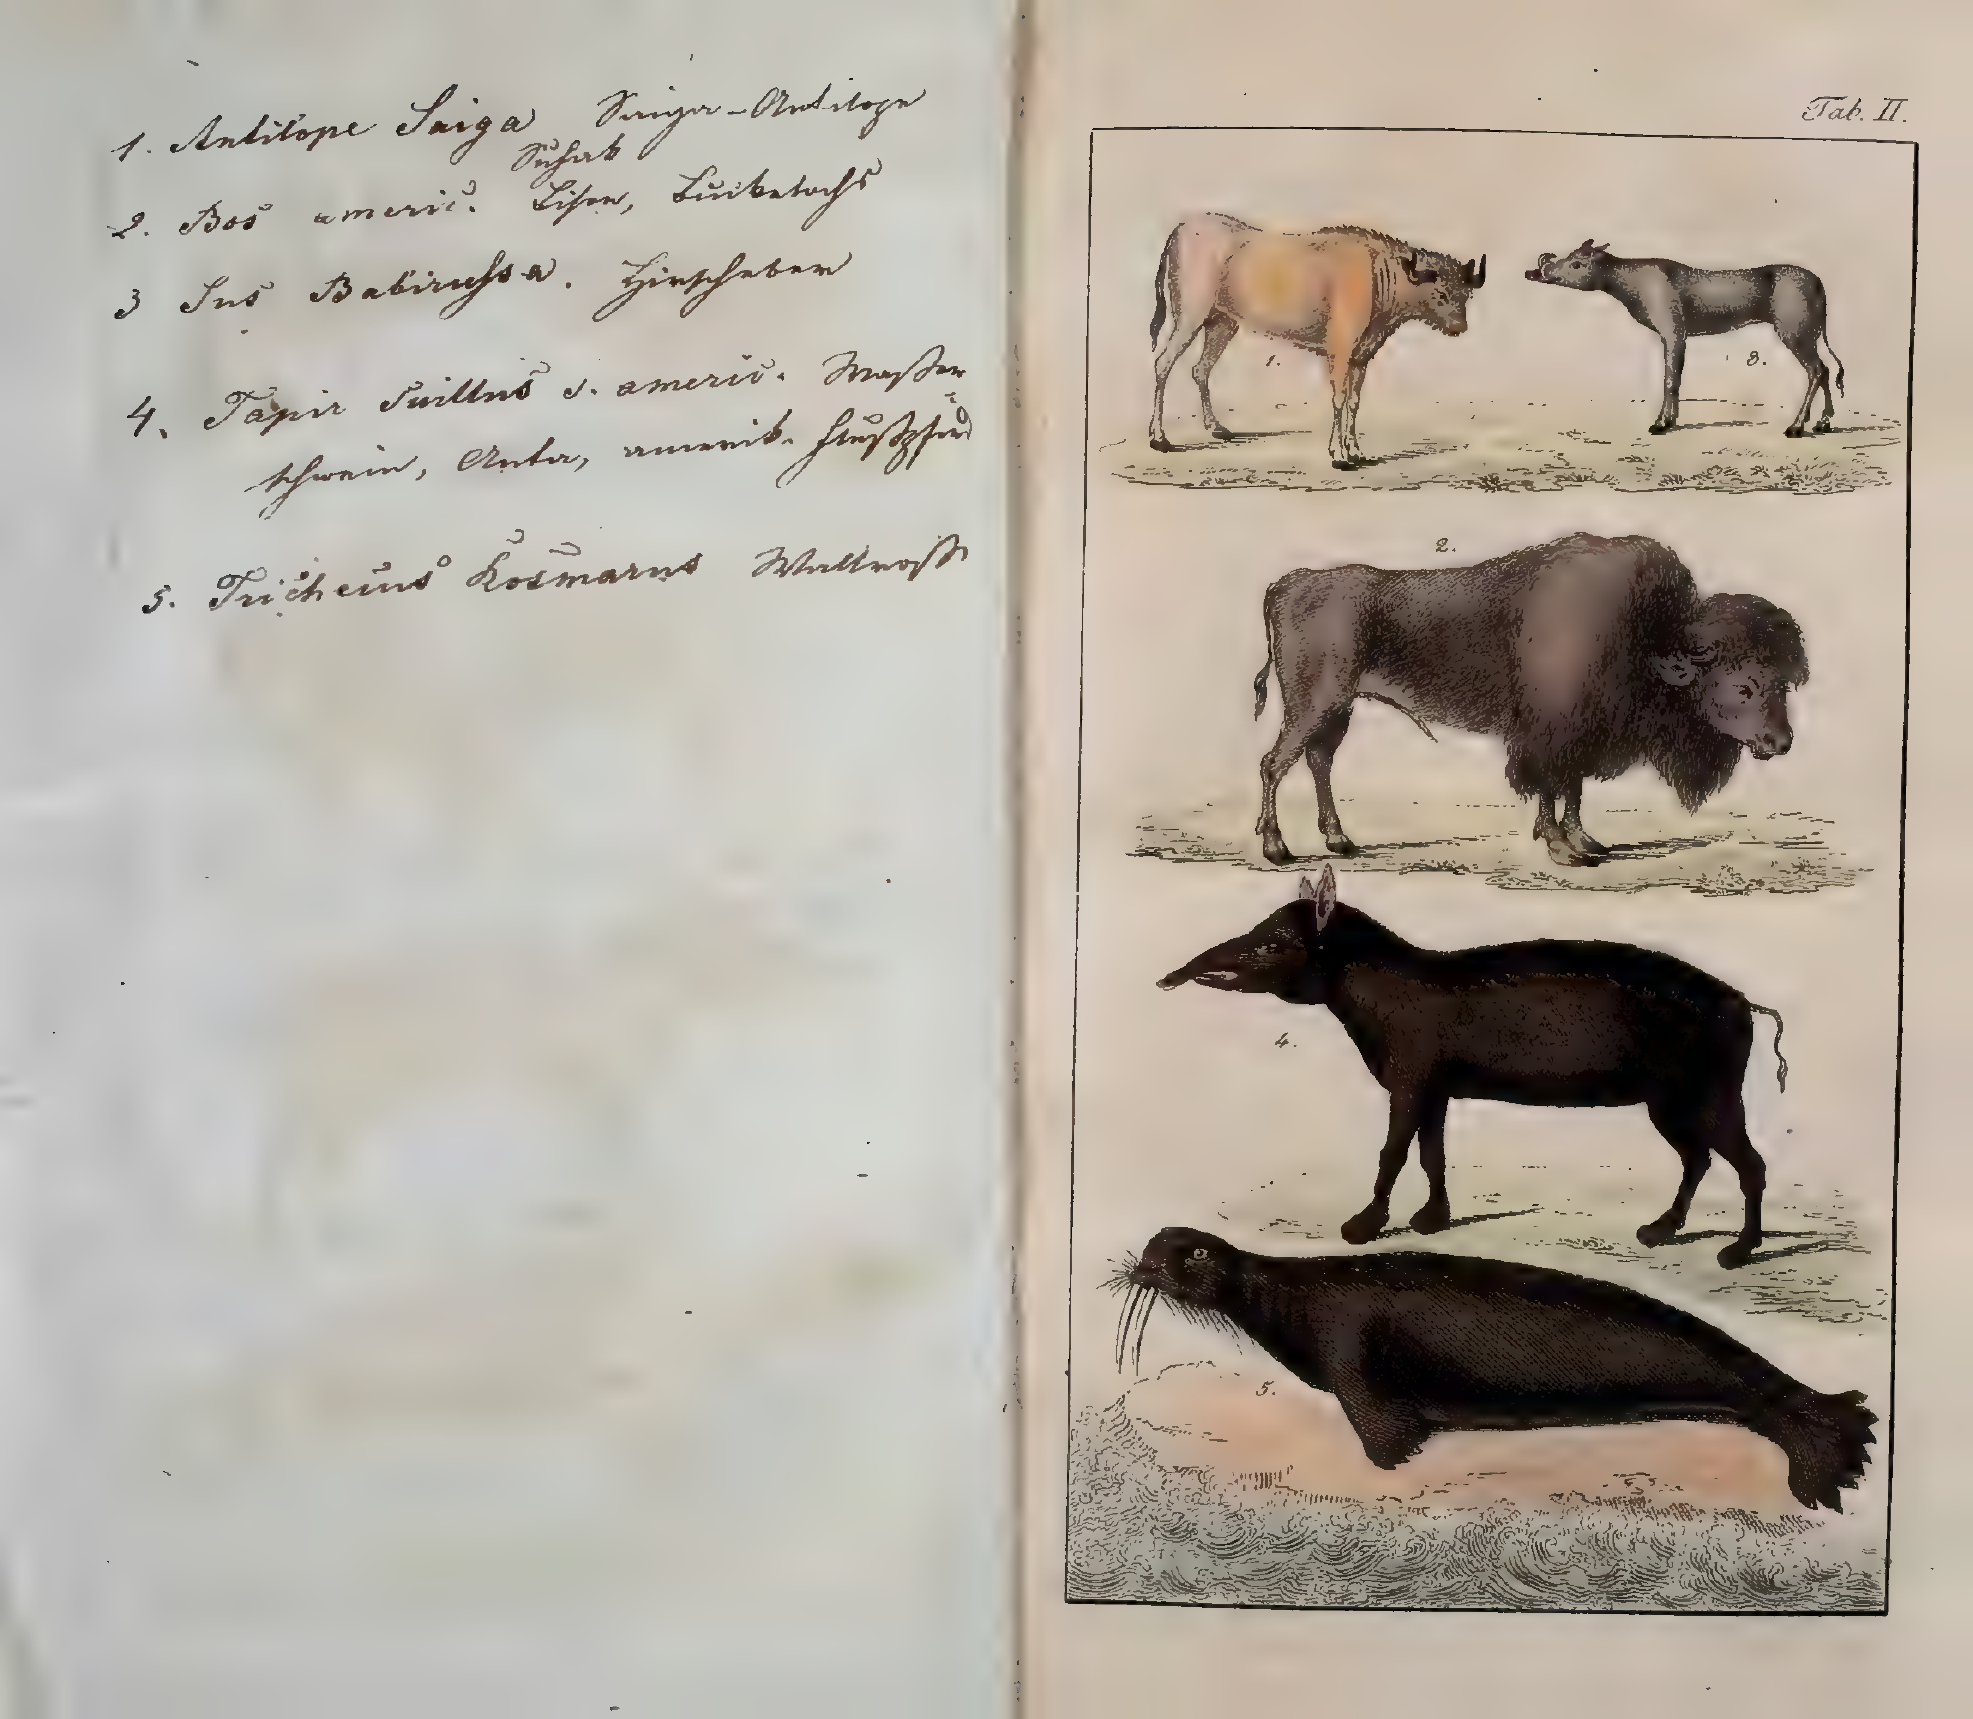 1. Antilope Saiga Saiga-Antilope
Suhak
2. Bos americ. Bison, Buckelochs
3 Sus Babirussa. Hirscheber
4. Tapir suillus s. americ. Wasser
schwein, Anta, amerik. Flußpferd
5. Trichecus Rosmarus Wallroß
Tab. II.
1.
3.
2.
4.
5.